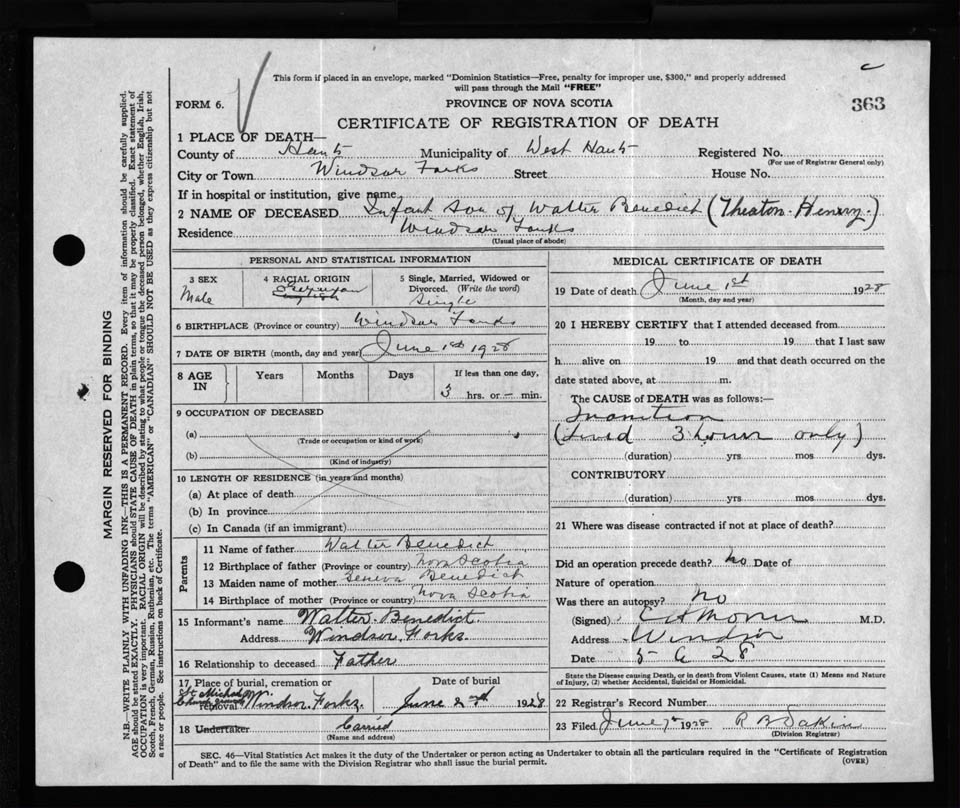 This form if placed in an envelope, marked "Dominion Statistics—Free, penalty for improper use, $300," and properly addressed
will pass through the Mail "FREE"
FORM 6.
PROVINCE OF NOVA SCOTIA
363
CERTIFICATE OF REGISTRATION OF DEATH
1 PLACE OF DEATH—
County of Hants Municipality of West Hants Registered No.
(For use of Registrar General only)
City or Town Windsor Forks Street House No.
If in hospital or institution, give name
2 NAME OF DECEASED Infant son of Walter Benedict (Theaton Henry.)
Residence Windsor Forks
(Usual place of abode)
PERSONAL AND STATISTICAL INFORMATION
3 SEX Male
4 RACIAL ORIGIN English
5 Single, Married, Widowed or Divorced. (Write the word) Single
6 BIRTHPLACE (Province or country) Windsor Forks
7 DATE OF BIRTH (month, day and year) June 1st 1928
8 AGE IN Years Months Days If less than one day, 3 hrs. or – min.
9 OCCUPATION OF DECEASED
(a)
(Trade or occupation or kind of work)
(b)
(Kind of industry)
10 LENGTH OF RESIDENCE (in years and months)
(a) At place of death
(b) In province
(c) In Canada (if an immigrant)
Parents
11 Name of father Walter Benedict
12 Birthplace of father (Province or country) Nova Scotia
13 Maiden name of mother Geneva Benedict
14 Birthplace of mother (Province or country) Nova Scotia
15 Informant's name Walter Benedict.
Address Windsor Forks.
16 Relationship to deceased Father
17 Place of burial, cremation or removal St Michael Windsor Forks
Date of burial June 2nd 1928
18 Undertaker Carried
(Name and address)
MEDICAL CERTIFICATE OF DEATH
19 Date of death June 1st 1928
(Month, day and year)
20 I HEREBY CERTIFY that I attended deceased from
19 to 19 that I last saw
h alive on 19 and that death occurred on the
date stated above, at m.
The CAUSE of DEATH was as follows:—
Inanition
(Lived 3 hours only)
(duration) yrs mos dys.
CONTRIBUTORY
(duration) yrs mos dys.
21 Where was disease contracted if not at place of death?
Did an operation precede death? no Date of
Nature of operation
Was there an autopsy? no
(Signed) M.D.
Address Windsor
Date 5 6 28
State the Disease causing Death, or in death from Violent Causes, state (1) Means and Nature
of Injury, (2) whether Accidental, Suicidal or Homicidal.
22 Registrar's Record Number
23 Filed June 7th 1928 R B Dakin
(Division Registrar)
SEC. 46—Vital Statistics Act makes it the duty of the Undertaker or person acting as Undertaker to obtain all the particulars required in the "Certificate of Registration
of Death" and to file the same with the Division Registrar who shall issue the burial permit.
(OVER)
MARGIN RESERVED FOR BINDING
N.B.—WRITE PLAINLY WITH UNFADING INK—THIS IS A PERMANENT RECORD. Every item of information should be carefully supplied.
AGE should be stated EXACTLY. PHYSICIANS should STATE CAUSE OF DEATH in plain terms, so that it may be properly classified. Exact statement of
OCCUPATION is very important. RACIAL ORIGIN will be described by stating to what people or tongue the deceased person belonged, whether English, Irish,
Scotch, French, German, Russian, Ruthenian, etc. The terms "AMERICAN" or "CANADIAN" SHOULD NOT BE USED as they express citizenship but not
a race or people. See instructions on back of Certificate.